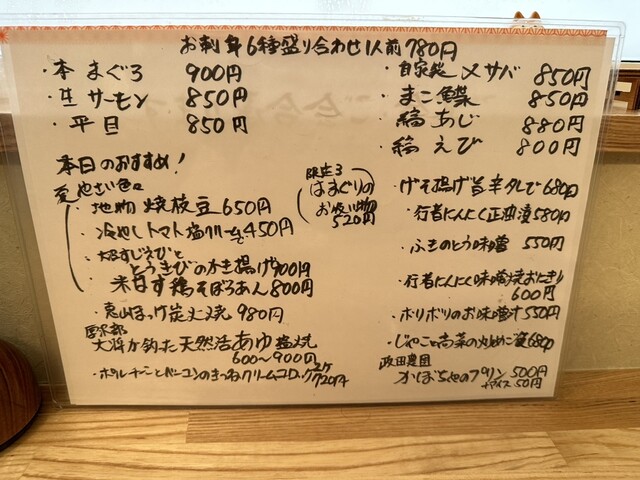 お刺身6種盛り合わせ1人前780円
・本まぐろ 900円
・生サーモン 850円
・平目 850円
・自家製〆サバ 850円
・まこ鰈 850円
・縞あじ 880円
・縞えび 800円
本日のおすすめ!
夏やさい色々
・地物焼枝豆650円
・冷やしトマト塩クリームで450円
・大谷すじえびと
とうきびのかき揚げ900円
・米なす鶏そぼろあん800円
限定3
はまぐりの
お吸い物
520円
・恵山ほっけ炭火焼 980円
厚沢部
大将が釣った天然活あゆ塩焼
600〜900円
・ポルチーニとベーコンのきつねクリームコロッケ
720円
・げそ揚げ旨辛タレで680円
・行者にんにく正油漬580円
・ふきのとう味噌 550円
・行者にんにく味噌焼おにぎり
600円
・ボリボリのお味噌汁550円
・じゃことたか菜の丸めご飯680円
政田農園
かぼちゃのプリン500円
+アイス50円